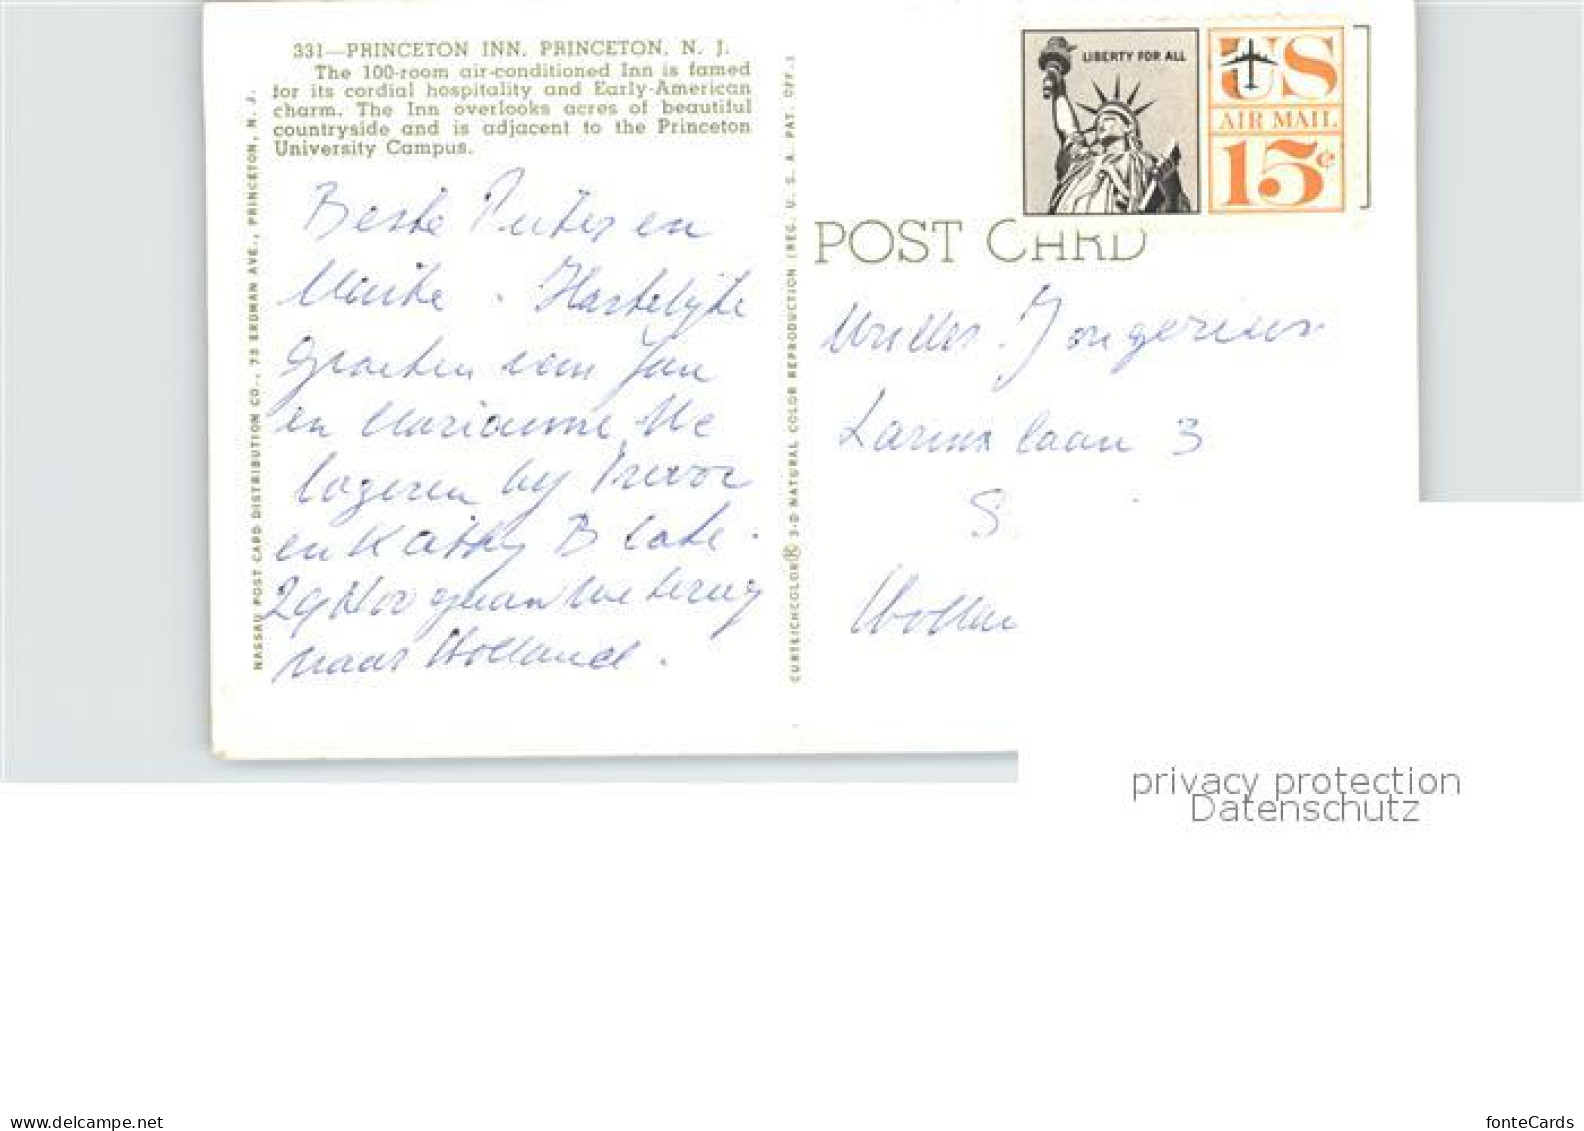 331—PRINCETON INN, PRINCETON, N. J.
The 100-room air-conditioned Inn is famed
for its cordial hospitality and Early-American
charm. The Inn overlooks acres of beautiful
countryside and is adjacent to the Princeton
University Campus.
Beste Pieter en
Hartelijke
Groeten van Jan
en Marianne. We
logeren by Trevor
en Kathy
29 Nov gaan we terug
naar Holland.
NASSAU POST CARD DISTRIBUTION CO., 73 ERDMAN AVE., PRINCETON, N. J.
CURTEICHCOLOR® 3-D NATURAL COLOR REPRODUCTION (REG. U. S. A. PAT. OFF.)
LIBERTY FOR ALL
US
AIR MAIL
15¢
POST CARD
Jongerius
laan 3
S
Hollan
privacy protection
Datenschutz
www.delcampe.net
fonteCards